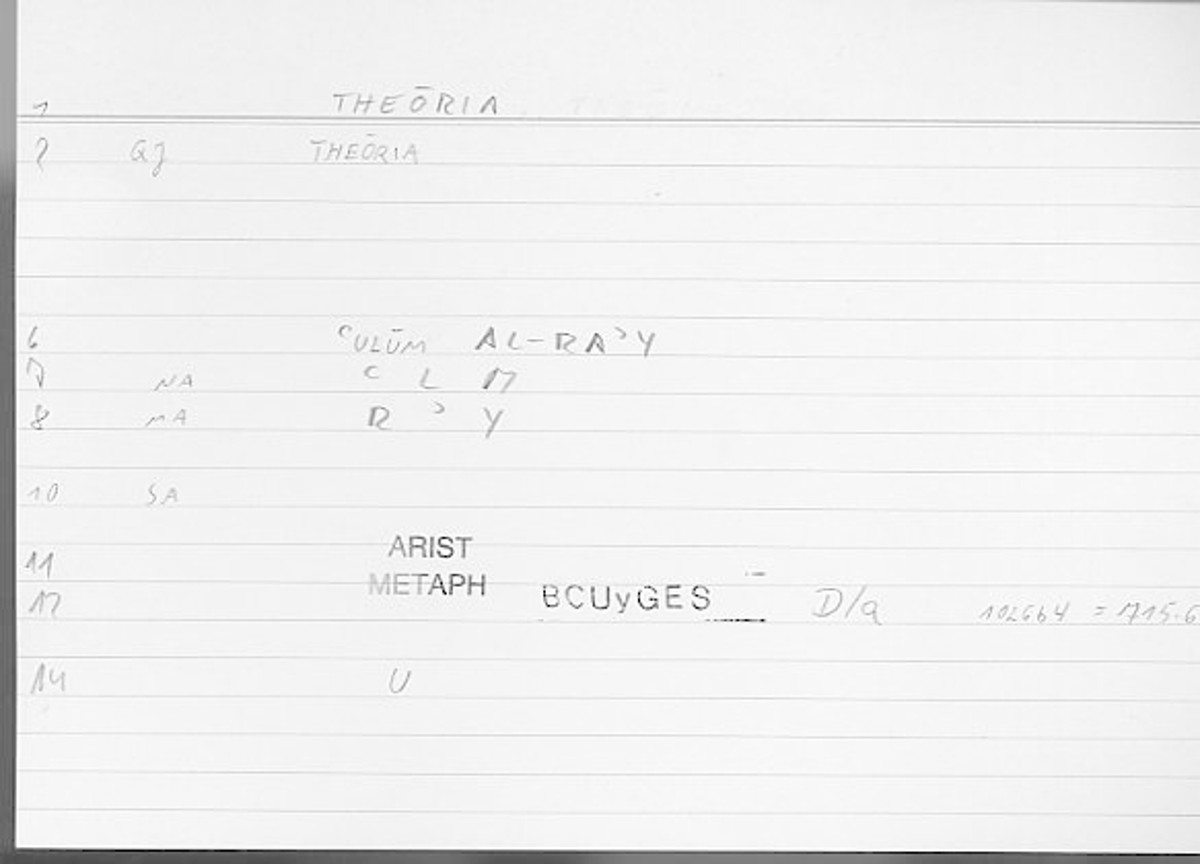 1 THEŌRIA
2 GJ THEŌRIA
6 ʿULŪM AL-RAʾY
7 NA ʿ L M
8 NA R ʾ Y
10 SA
11 ARIST
12 METAPH BCUyGES D/a = 715.6
14 U